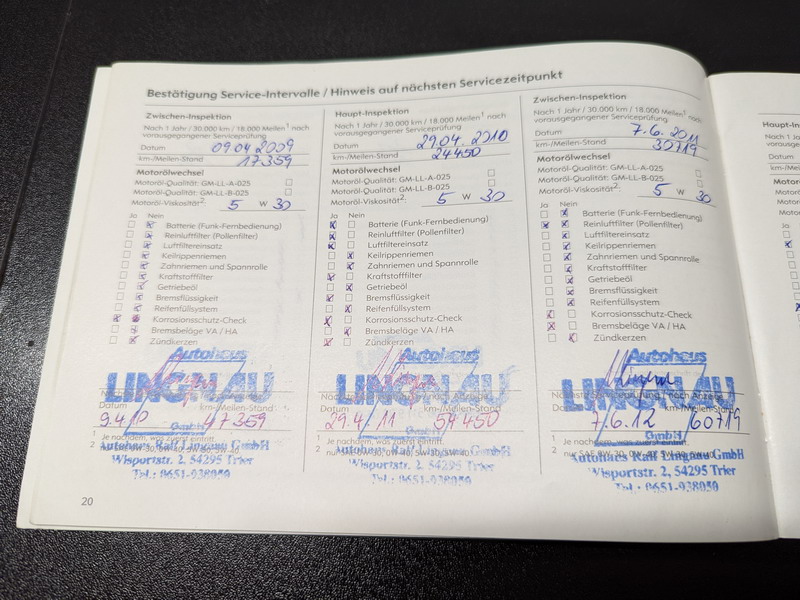 Bestätigung Service-Intervalle / Hinweis auf nächsten Servicezeitpunkt
Zwischen-Inspektion
Nach 1 Jahr / 30.000 km / 18.000 Meilen1 nach
vorausgegangener Serviceprüfung
Datum 09.04.2009
km-/Meilen-Stand 17.359
Motorölwechsel
Motoröl-Qualität: GM-LL-A-025
Motoröl-Qualität: GM-LL-B-025
Motoröl-Viskosität2: 5 W 30
Ja Nein
Batterie (Funk-Fernbedienung)
Reinluftfilter (Pollenfilter)
Luftfiltereinsatz
Keilrippenriemen
Zahnriemen und Spannrolle
Kraftstofffilter
Getriebeöl
Bremsflüssigkeit
Reifenfüllsystem
Korrosionsschutz-Check
Bremsbeläge VA / HA
Zündkerzen
Autohaus
LINGNAU
GmbH
Datum km-/Meilen-Stand
9.4.10 47359
1 Je nachdem, was zuerst eintritt.
Autohaus Ralf Lingnau GmbH
Wisportstr. 2, 54295 Trier
Tel.: 0651-938050
20
Haupt-Inspektion
Nach 1 Jahr / 30.000 km / 18.000 Meilen1 nach
vorausgegangener Serviceprüfung
Datum 29.04.2010
km-/Meilen-Stand 24450
Motorölwechsel
Motoröl-Qualität: GM-LL-A-025
Motoröl-Qualität: GM-LL-B-025
Motoröl-Viskosität2: 5 W 30
Ja Nein
Batterie (Funk-Fernbedienung)
Reinluftfilter (Pollenfilter)
Luftfiltereinsatz
Keilrippenriemen
Zahnriemen und Spannrolle
Kraftstofffilter
Getriebeöl
Bremsflüssigkeit
Reifenfüllsystem
Korrosionsschutz-Check
Bremsbeläge VA / HA
Zündkerzen
Autohaus
LINGNAU
GmbH
Datum km-/Meilen-Stand
29.4.11 54450
1 Je nachdem, was zuerst eintritt.
Autohaus Ralf Lingnau GmbH
Wisportstr. 2, 54295 Trier
Tel.: 0651-938050
Zwischen-Inspektion
Nach 1 Jahr / 30.000 km / 18.000 Meilen1 nach
vorausgegangener Serviceprüfung
Datum 7.6.2011
km-/Meilen-Stand 30719
Motorölwechsel
Motoröl-Qualität: GM-LL-A-025
Motoröl-Qualität: GM-LL-B-025
Motoröl-Viskosität2: 5 W 30
Ja Nein
Batterie (Funk-Fernbedienung)
Reinluftfilter (Pollenfilter)
Luftfiltereinsatz
Keilrippenriemen
Zahnriemen und Spannrolle
Kraftstofffilter
Getriebeöl
Bremsflüssigkeit
Reifenfüllsystem
Korrosionsschutz-Check
Bremsbeläge VA / HA
Zündkerzen
Autohaus
LINGNAU
GmbH
Datum km-/Meilen-Stand
7.6.12 60719
1 Je nachdem, was zuerst eintritt.
Autohaus Ralf Lingnau GmbH
Wisportstr. 2, 54295 Trier
Tel.: 0651-938050